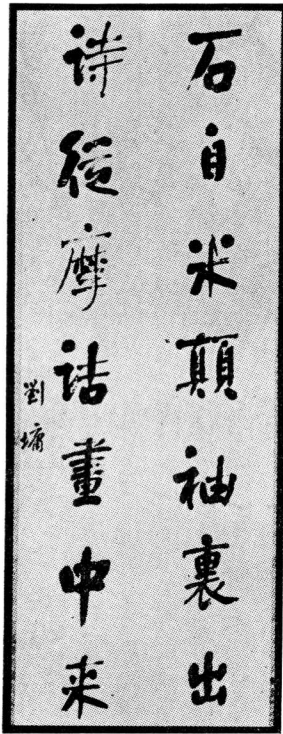 石自米顛袖裏出
詩從摩詰畫中来
劉墉